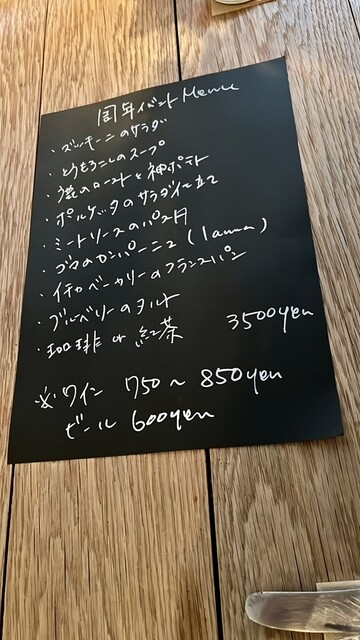 周年イベント Menu
・ズッキーニのサラダ
・とうもろこしのスープ
・鶏のローストと神ポテト
・ポルケッタのサラダ仕立て
・ミートソースのパスタ
・ゴマのカンパーニュ (lama)
・イチカベーカリーのフランスパン
・ブルーベリーのタルト
・珈琲 or 紅茶 3500yen
※ワイン 750〜850yen
ビール 600yen